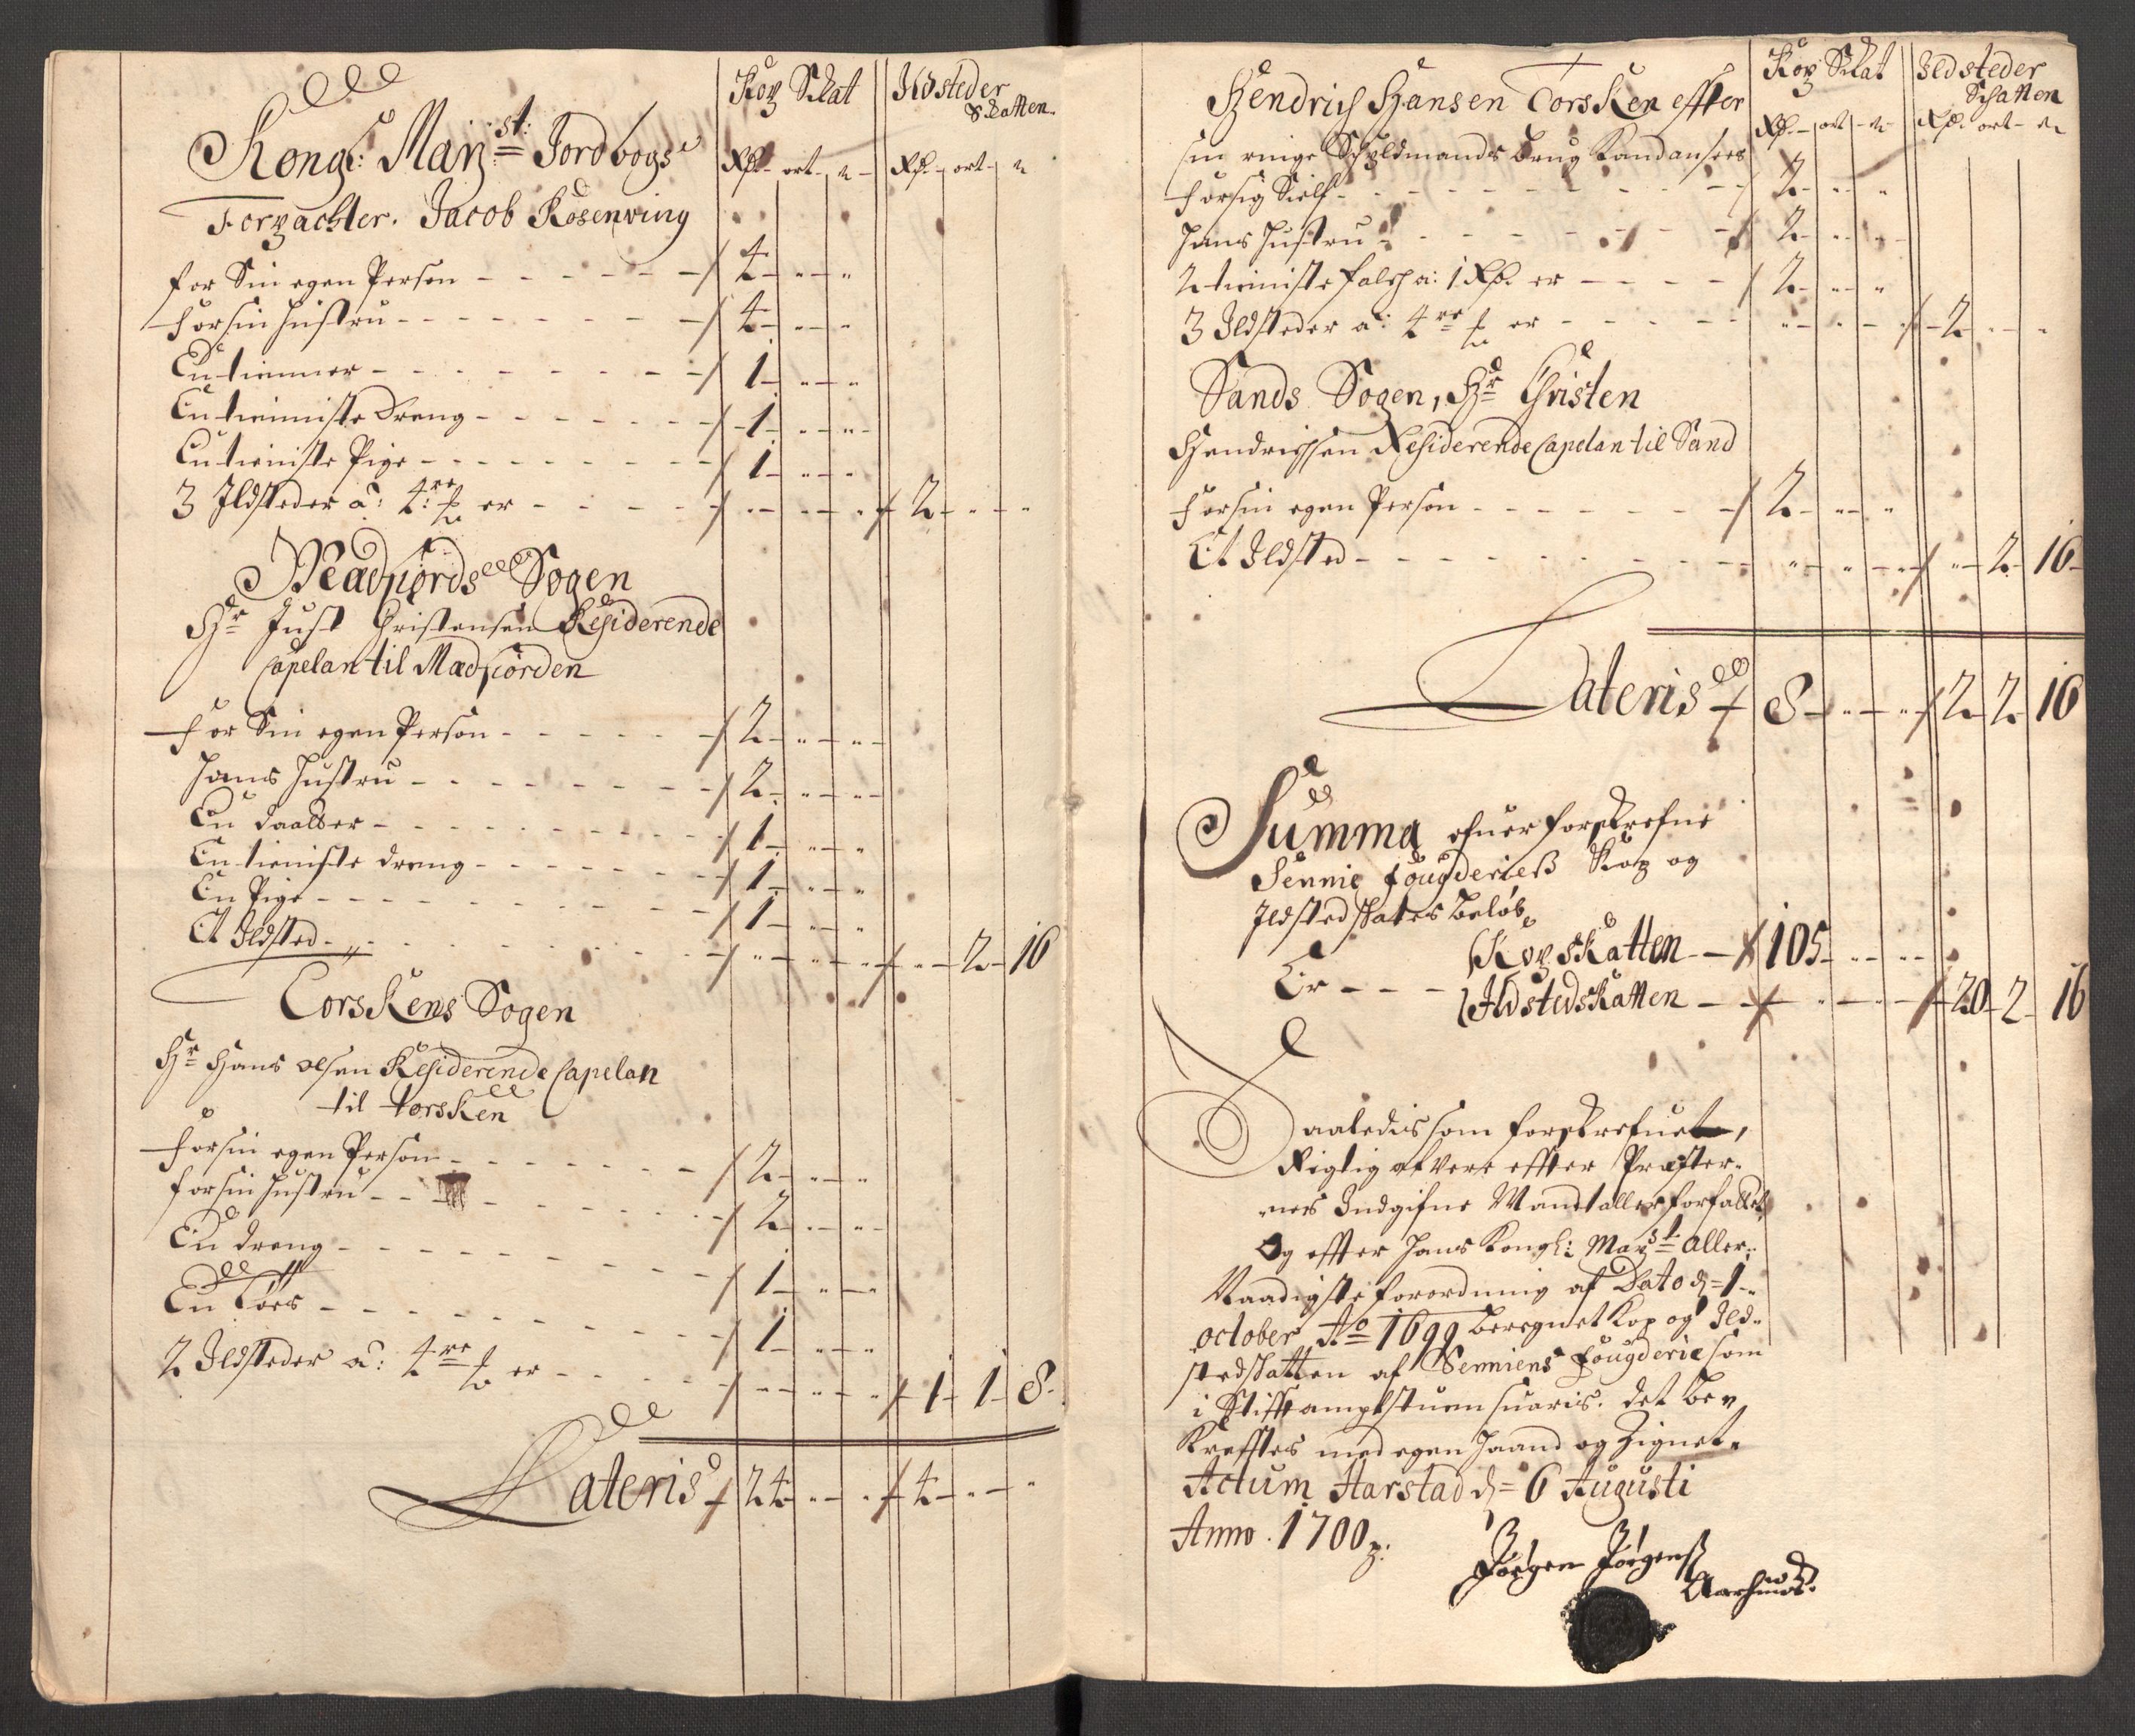 Kop Skat Ildsteder
Skatten
Kongl: May:st: Jordbogs
Rd. ort. s Rd. ort. s
Forpachter. Jacob Rosenving
for Sin egen Person - - - 4 - " - "
for sin hustru - - - 4 - " - "
En tienner - - - 1 - " - "
En tienniste dreng - - - 1 - " - "
En tieniste Pige - - - 1 - " - "
3 Ildsteder a: 4re s er - - - " - " - " 2 - " - "
Medfiords Sogen
Hr Just Christensen Residerende
Capelan til Medfiorden
for Sin egen Person - - - 2 - " - "
hans hustru - - - 2 - " - "
En daatter - - - 1 - " - "
En tieniste dreng - - - 1 - " - "
En Pige - - - 1 - " - "
Et Ildsted - - - " - " - " " - 2 - 16
Torskens Sogen
Hr Hans olsen Residerende Capelan
til torsken
for sin egen Person - - - 2 - " - "
for sin hustru - - - 2 - " - "
En dreng - - - 1 - " - "
En Tøes - - - 1 - " - "
2 Ildsteder a: 4re s er - - - " - " - " 1 - 1 - 8
Lateris 24 - " - " 4 - " - "
Kop Skat Ildsteder
Schatten
Hendrich Hansen Torsken effter
Rd. ort - s Rd. ort - s
sin ringe Schyldmands brug
for sig Sielf - - - 2 - " "
hans hustru - - - 2 - " -
2 tieniste folch a: 1 Rd. er - - - 2 - " "
3 Ildsteder a: 4re s er - - - " - " - " 2 - " "
Sands Sogen, Hr Christen
Hendrichsen Residerende Capelan til Sand
for sin egen Person - - - 2 - " - "
Et Ildsted - - - " - " - " " - 2 - 16
Lateris 8 - " - " 2 - 2 - 16
Summa ofuer forskrefne
Sennie fougderies Kop og
Ildsted skates beløb
Er - - - Kopskatten - 105 - " - "
Ildstedskatten - " - " - 20 - 2 - 16
Saaledis som forskrefuet,
Rigtig at vere effter Præster-
nes Indgifne Mandtaller forfattet,
Og effter hans Kongl: May:st aller-
Naadigste forordning af Dato d= 1
october Ao 1699 beregnet Kop og Ild-
stedskatten af Senniens fougderie som
i Stifft amptstuen suaris. det be-
krefftes med egen haand og Zignet.
Actum Harstad d= 6 Augusti
Anno. 1700
Jørgen Jørgens
Aarhuus.